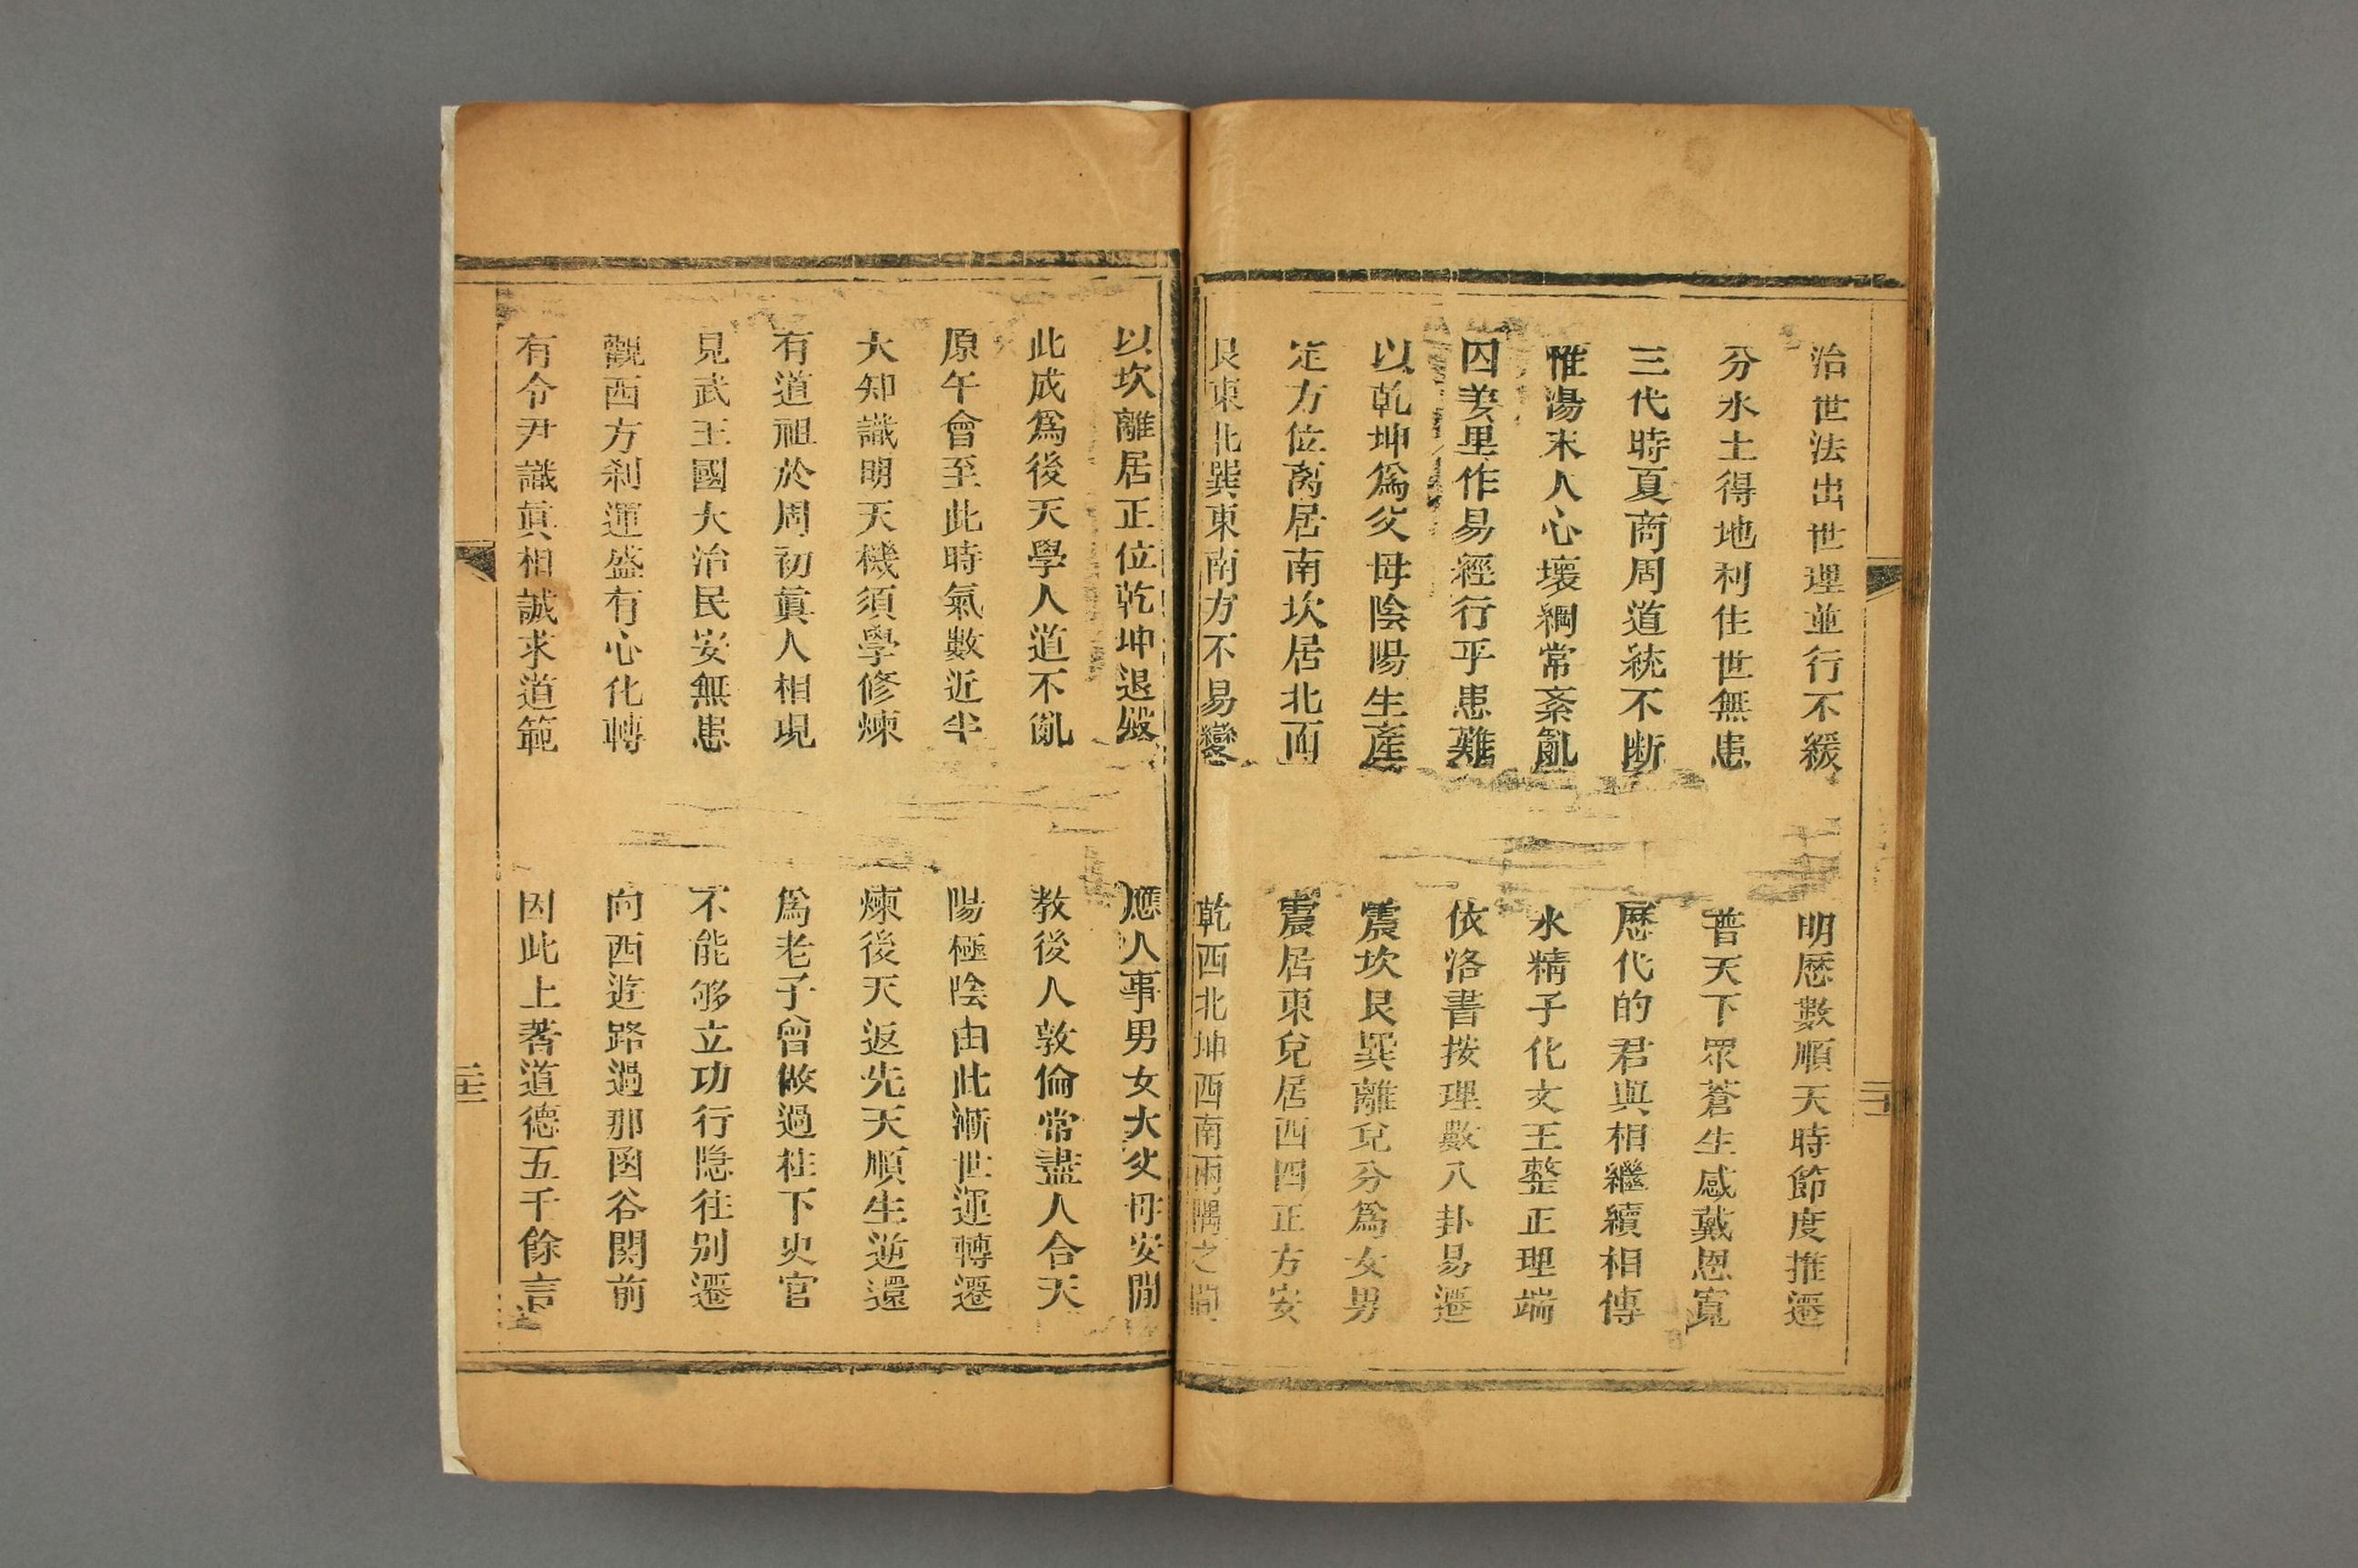 治世法出世理並行不緩　明歴數順天時節度推遷
分水土得地利住世無患　普天下眾蒼生感戴恩寬
三代時夏商周道統不断　歴代的君與相繼續相傳
惟湯末人心壞綱常紊亂　水精子化文王整正理端
囚姜里作易經行乎患難　依洛書按理數八卦易遷
以乾坤爲父母陰陽生產　震坎艮巽離兌分爲女男
定方位离居南坎居北面　震居東兌居西四正方安
艮東北巽東南方不易變　乾西北坤西南兩隅之間
以坎離居正位乾坤退毀　應人事男女大父母安閒
此成爲後天學人道不亂　教後人敦倫常盡人合天
原午會至此時氣數近半　陽極陰由此漸世運轉遷
大知識明天機須學修煉　煉後天返先天順生逆還
有道祖於周初眞人相現　爲老子曾做過柱下史官
見武王國大治民安無患　不能够立功行隐往别遷
觀西方刹運盛有心化轉　向西遊路過那函谷関前
有令尹識眞相誠求道範　因此上著道德五千餘言